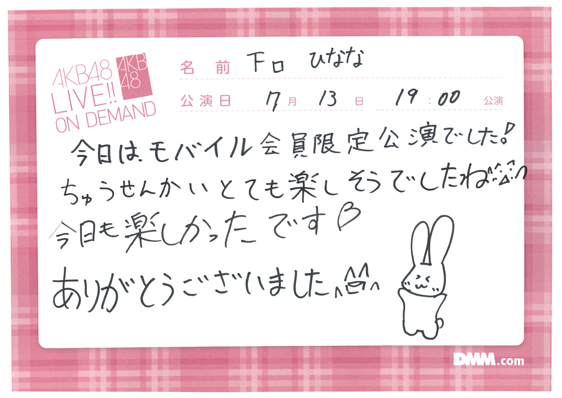 AKB48
LIVE!!
ON DEMAND
AKB
48
名前 下口 ひなな
公演日 7月 13日 19:00 公演
今日は、モバイル会員限定公演でした!
ちゅうせんかいとても楽しそうでしたね
今日も楽しかったです
ありがとうございました
DMM.com